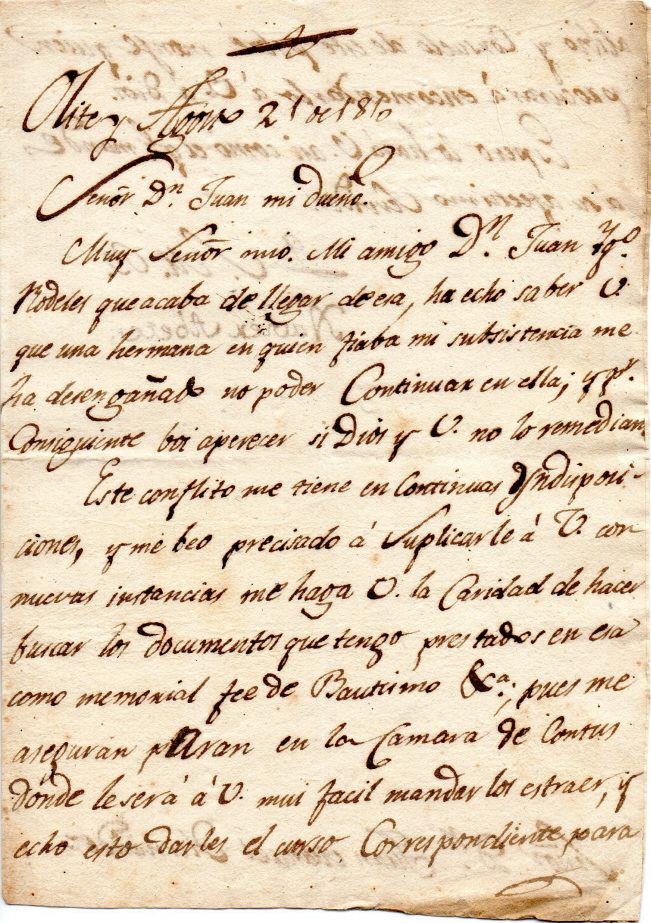 Olite y Agosto 21 de 1810
Señor Dn Juan mi dueño.
Muy Señor mio. Mi amigo Dn Juan Ygo
Rodeles que acaba de llegar de esa, ha echo saber V.
que una hermana en quien fiaba mi subsistencia me
ha desengañado no poder Continuar en ella; y pr.
Consiguiente boi aperecer si Dios y V. no lo remedian
Este conflito me tiene en Continuas Yndisposi-
ciones, y me beo precisado á Suplicarle á V. con
nuevas instancias me haga V. la Caridad de hacer
buscar los documentos que tengo prestados en esa
como memorial fee de Bautismo &ca; pues me
aseguran paran en la Camara de Contus
donde le será á V. mui facil mandar los estraer, y
echo esto darles el curso Correspondiente para